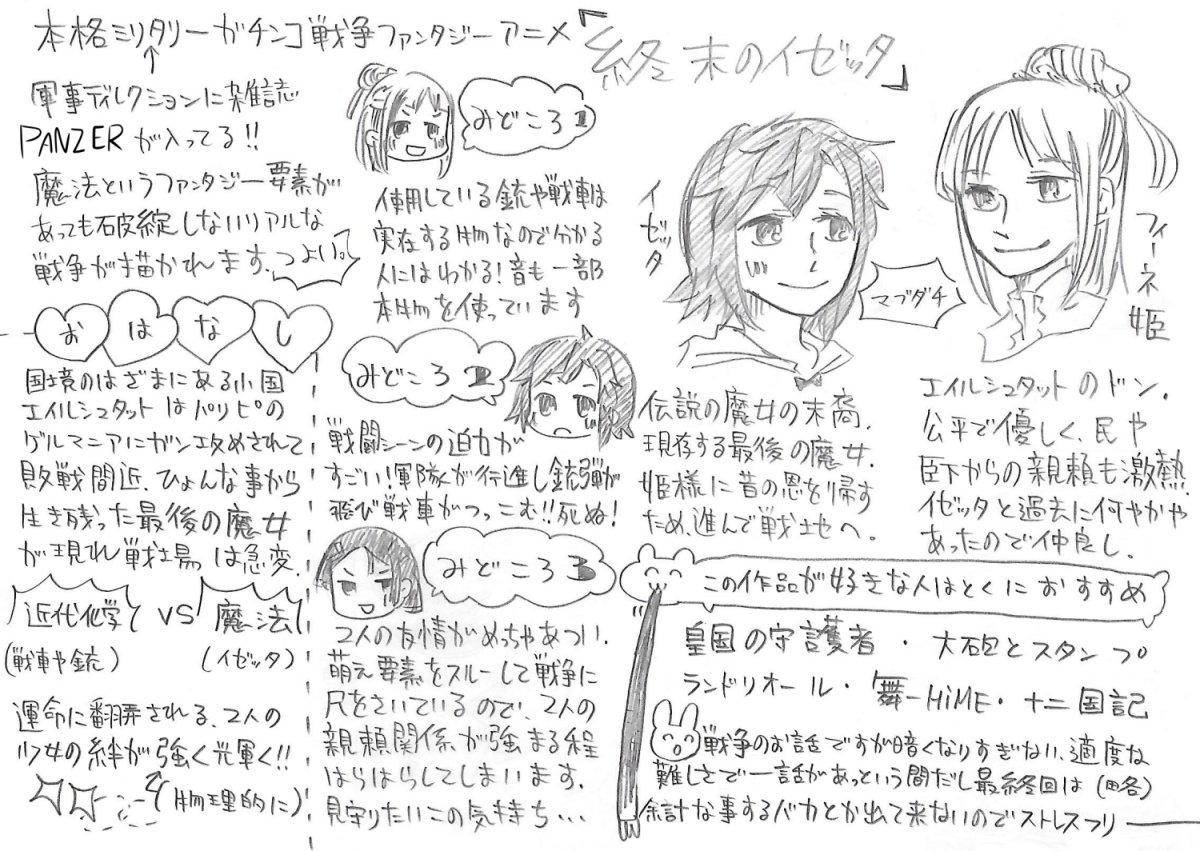 本格ミリタリーガチンコ戦争ファンタジーアニメ
「終末のイゼッタ」
↑
軍事ディレクションに雑誌
PANZERが入ってる!!
魔法というファンタジー要素が
あっても破綻しないリアルな
戦争が描かれます。つよい。
おはなし
国境のはざまにある小国
エイルシュタットはパリピの
ゲルマニアにガン攻めされて
敗戦間近。ひょんな事から
生き残った最後の魔女
が現れ戦場は急変。
近代化学 VS 魔法
(戦車や銃) (イゼッタ)
運命に翻弄される、2人の
少女の絆が強く光輝く!!
(物理的に)
みどころ1
使用している銃や戦車は
実在する物なので分かる
人にはわかる!音も一部
本物を使っています
みどころ2
戦闘シーンの迫力が
すごい!軍隊が行進し銃弾が
飛び戦車がつっこむ!!死ぬ!
みどころ3
2人の友情がめちゃあつい。
萌え要素をスルーして戦争に
尺をさいているので、2人の
親頼関係が強まる程
はらはらしてしまいます。
見守りたいこの気持ち…
イゼッタ
マブダチ
フィーネ姫
伝説の魔女の末裔。
現存する最後の魔女。
姫様に昔の恩を帰す
ため、進んで戦地へ。
エイルシュタットのドン。
公平で優しく、民や
臣下からの親頼も激熱。
イゼッタと過去に何やかや
あったので仲良し。
この作品が好きな人はとくにおすすめ
皇国の守護者・大砲とスタンプ
ランドリオール・舞-HiME・十二国記
戦争のお話ですが暗くなりすぎない、適度な
難しさで一話があっという間だし最終回は(略)
余計な事するバカとか出て来ないのでストレスフリー